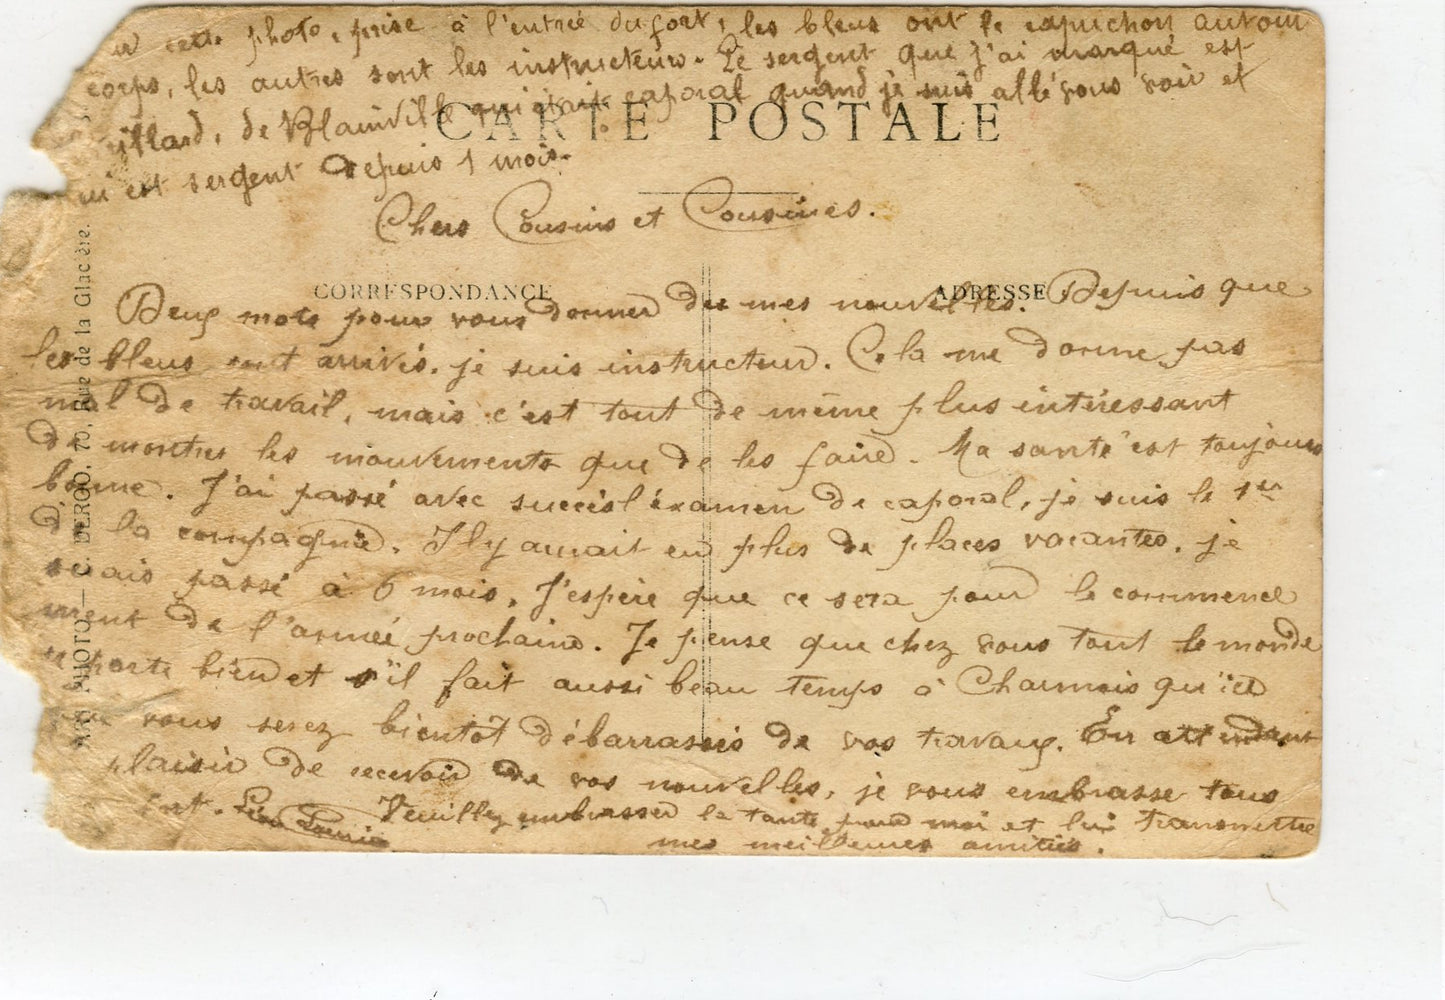 cette photo, prise à l'entrée du fort, les bleus ont le capuchon autour
corps, les autres sont les instructeurs. Le sergent que j'ai marqué est
de Blainville qui était caporal quand je suis allé vous voir et
est sergent depuis 1 mois.
CARTE POSTALE
Chers Cousins et Cousines.
CORRESPONDANCE
ADRESSE
Deux mots pour vous donner de mes nouvelles. Depuis que
les bleus sont arrivés, je suis instructeur. Cela me donne pas
mal de travail, mais c'est tout de même plus intéressant
de montrer les mouvements que de les faire. Ma santé est toujours
bonne. J'ai passé avec succès l'éxamen de caporal, je suis le 1er
de la compagnie. Il y aurait eu plus de places vacantes, je
serais passé à 6 mois. J'espère que ce sera pour le commence
ment de l'année prochaine. Je pense que chez vous tout le monde
se porte bien et s'il fait aussi beau temps à Charmois qu'ici
vous serez bientôt débarrassés de vos travaux. En attendant
plaisir de recevoir de vos nouvelles, je vous embrasse tous
Veuillez embrasser la tante pour moi et lui transmettre
mes meilleures amitiés.
PHOTO — C. 70, Rue de la Glacière.